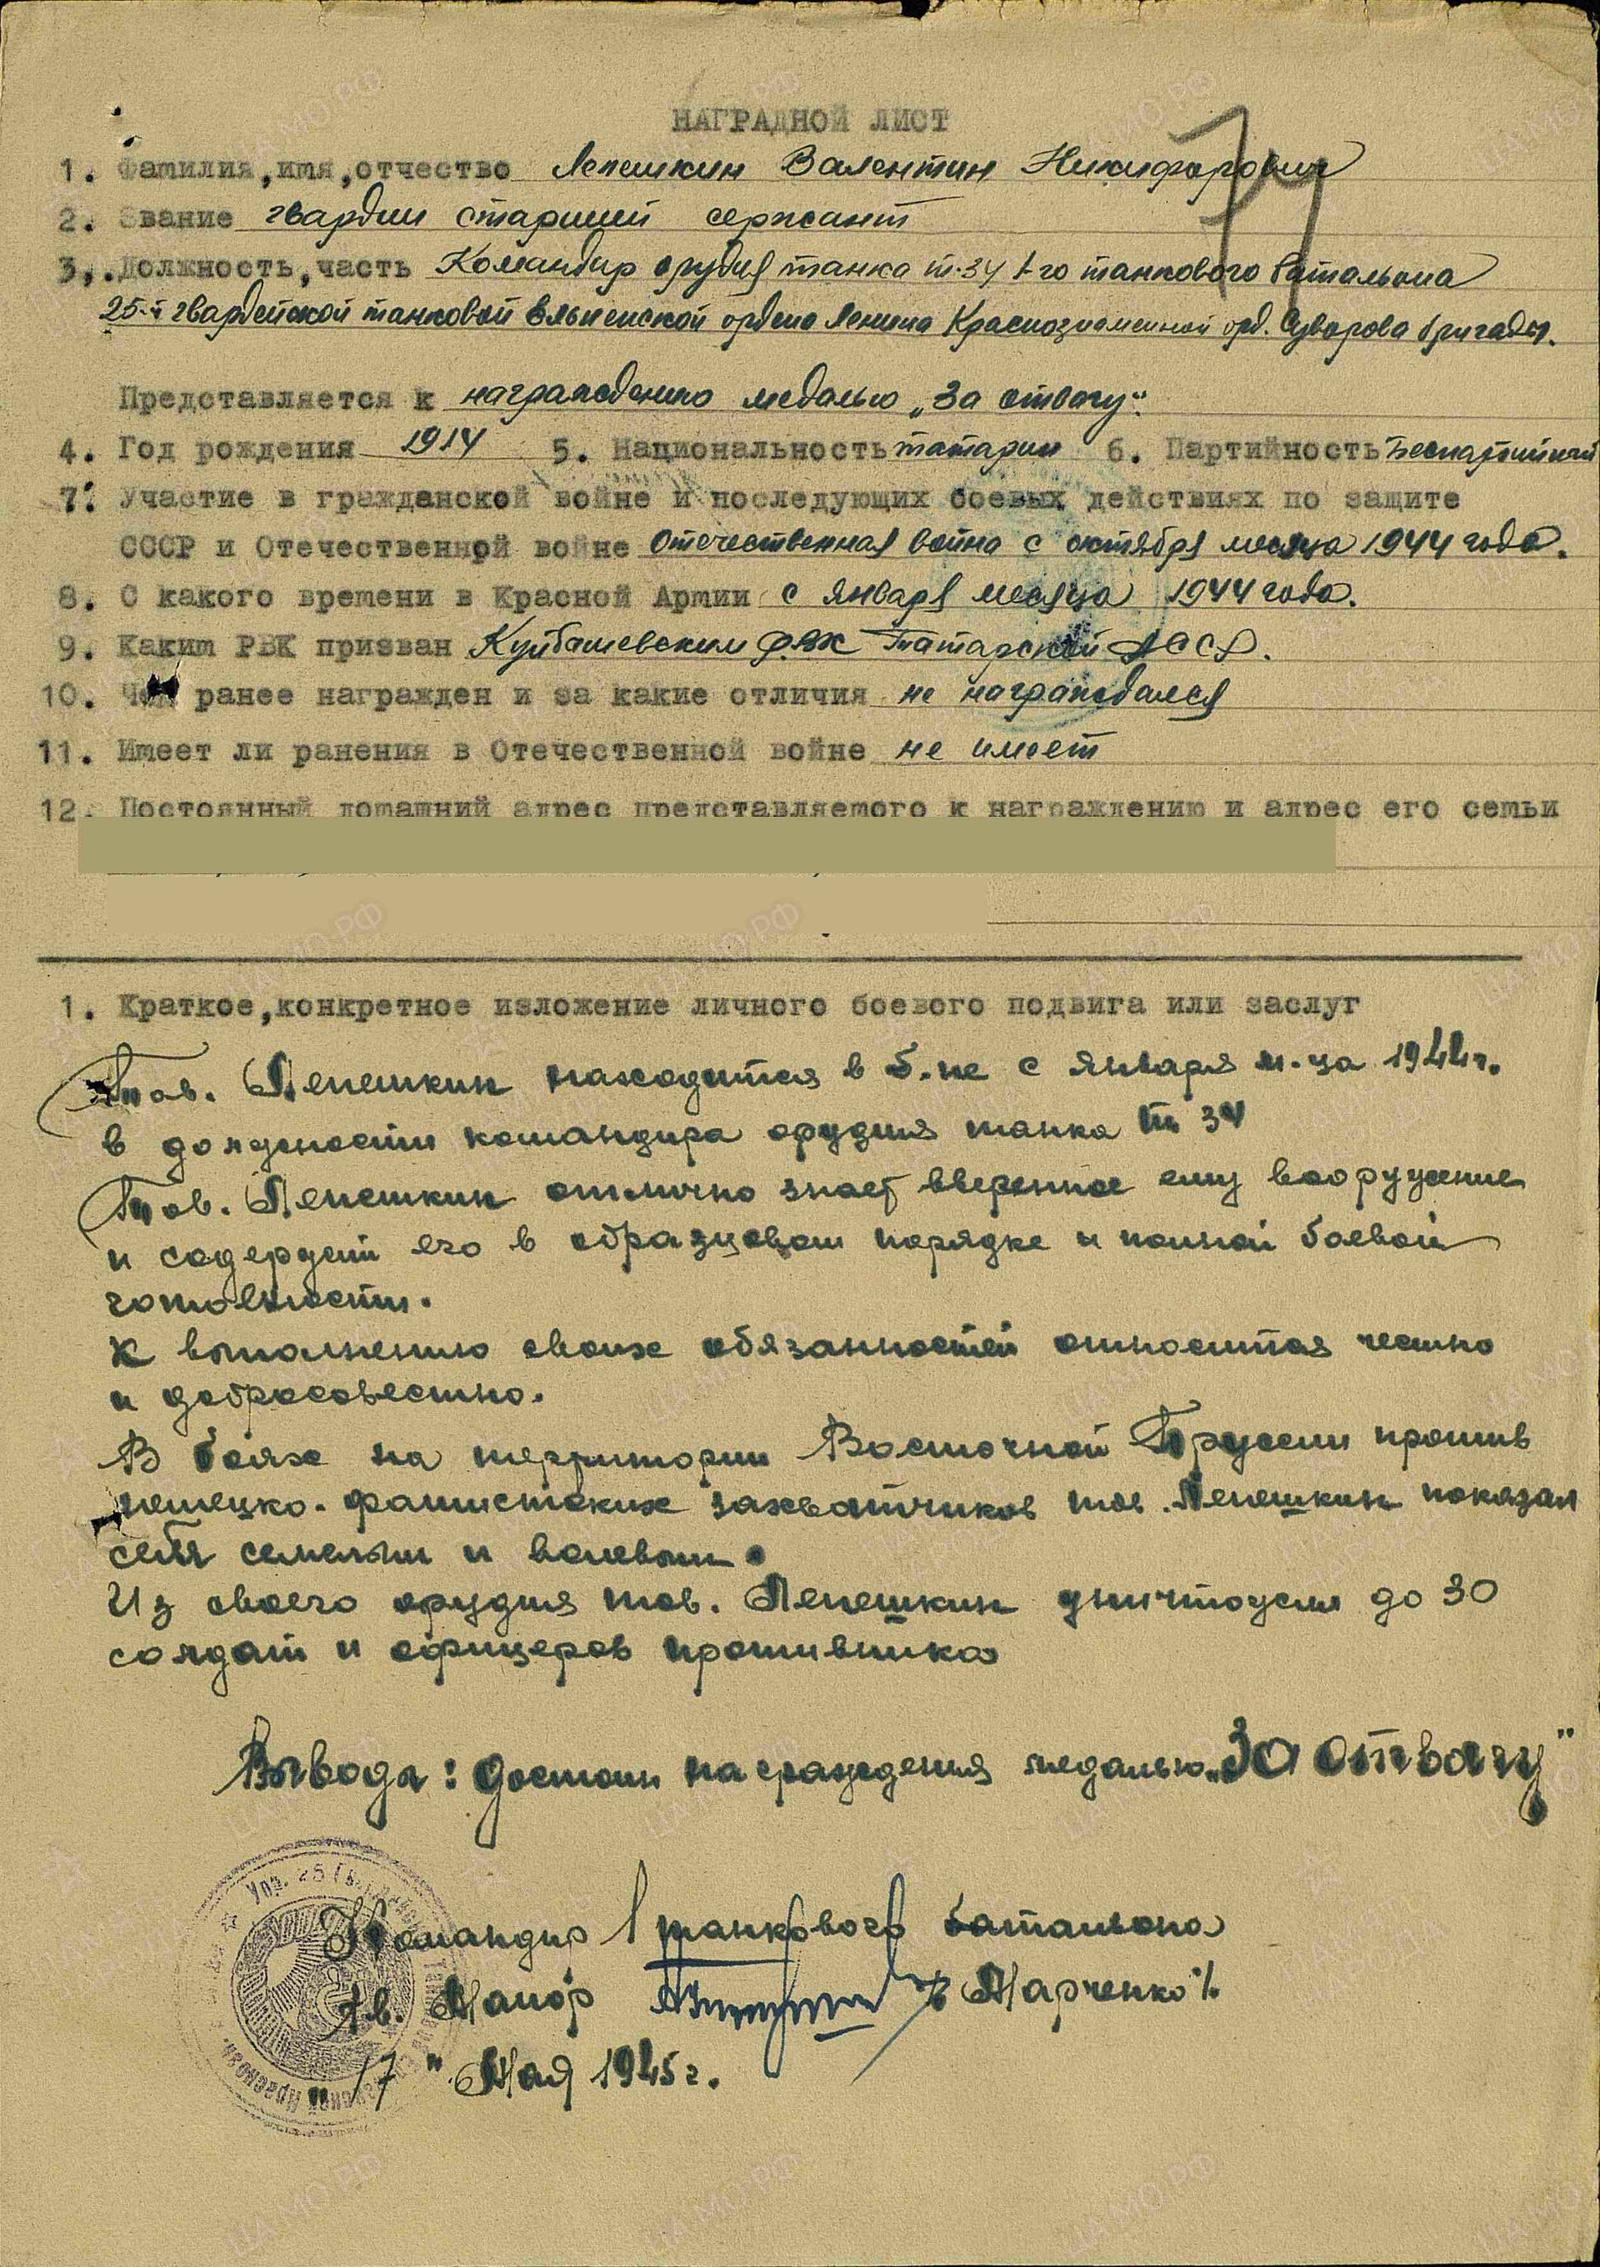 НАГРАДНОЙ ЛИСТ
1. Фамилия, имя, отчество Лепешкин Валентин Никифорович
2. Звание гвардии старший сержант
3. Должность, часть Командир орудия танка т-34 1-го танкового батальона
25-й гвардейской танковой Ельнинской ордена Ленина Краснознаменной орд. Суворова бригады.
Представляется к награждению медалью „За отвагу“.
4. Год рождения 1914 5. Национальность татарин 6. Партийность Беспартийный
7. Участие в гражданской войне и последующих боевых действиях по защите
СССР и Отечественной войне Отечественная война с октября месяца 1944 года.
8. С какого времени в Красной Армии с января месяца 1944 года.
9. Каким РВК призван Куйбышевским РВК Татарской АССР.
10. Чем ранее награжден и за какие отличия не награждался
11. Имеет ли ранения в Отечественной войне не имеет
12. Постоянный домашний адрес представляемого к награждению и адрес его семьи
1. Краткое, конкретное изложение личного боевого подвига или заслуг
Тов. Лепешкин находится в б-не с января м-ца 1944 г.
в должности командира орудия танка Т 34
Тов. Лепешкин отлично знает вверенное ему вооружение
и содержит его в образцовом порядке и полной боевой
готовности.
К выполнению своих обязанностей относится честно
и добросовестно.
В боях на территории Восточной Пруссии против
немецко-фашистских захватчиков тов. Лепешкин показал
себя смелым и волевым.
Из своего орудия тов. Лепешкин уничтожил до 30
солдат и офицеров противника
Выводы: Достоин награждения медалью „За отвагу"
Командир 1 танкового батальона
Гв. Майор /Марченко/.
„17" Мая 1945 г.